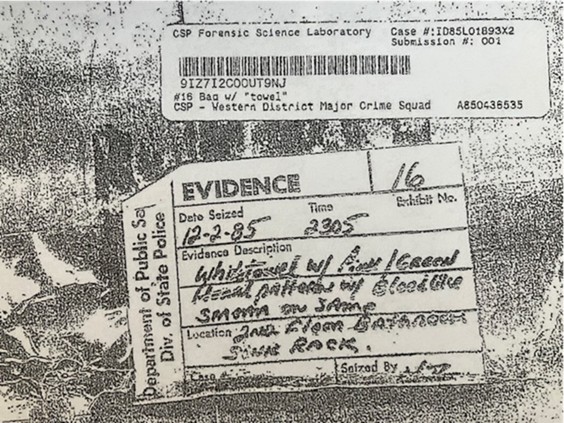 CSP Forensic Science Laboratory Case #:ID85L01893X2
Submission #: 001
9IZ7I2COOUT9NJ
#16 Bag w/ "towel"
CSP - Western District Major Crime Squad A850436535
Department of Public Sa
Div. of State Police
EVIDENCE 16
Date Seized Time Exhibit No.
12-2-85 2305
Evidence Description
White towel w/ Pink/Green
patterns w/ Bloodlike
on same
Location 2nd Floor Bathroom
Sink Rack.
Seized By